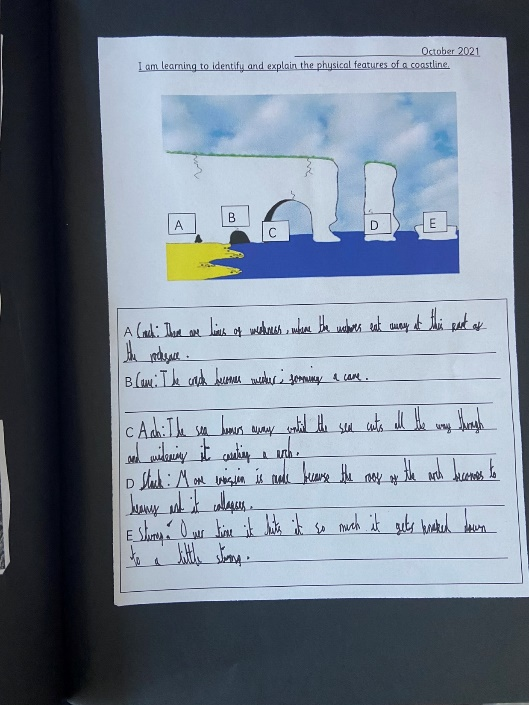 October 2021
I am learning to identify and explain the physical features of a coastline.
A
B
C
D
E
A Crack: There are lines of weakness, where the waves eat away at this part of
the rockface.
B Cave: The crack becomes weaker; forming a cave.
C Arch: The sea away until the sea cuts all the way through
and widening it creating a arch.
D Stack: More erosion is made because the roof of the arch becomes to
heavy and it collapses.
E Stump: Over time it hits it so much it gets knocked down
to a little stump.